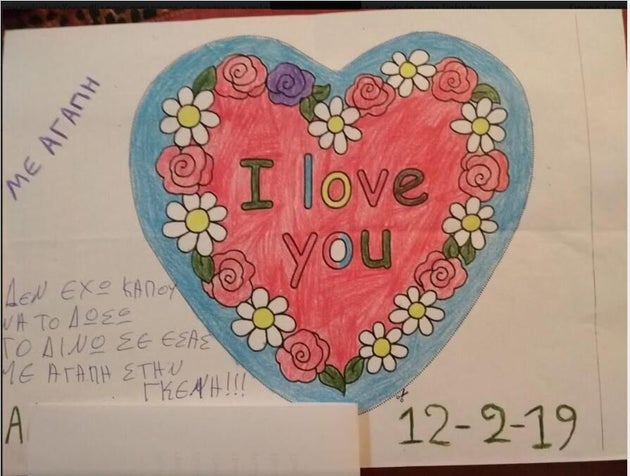 ΜΕ ΑΓΑΠΗ
I love
you
ΔΕΝ ΕΧΩ ΚΑΠΟΥ
ΝΑ ΤΟ ΔΩΣΩ
ΤΟ ΔΙΝΩ ΣΕ ΕΣΑΣ
ΜΕ ΑΓΑΠΗ ΣΤΗΝ
ΓΚΕΝΗ!!!
Α
12-2-19